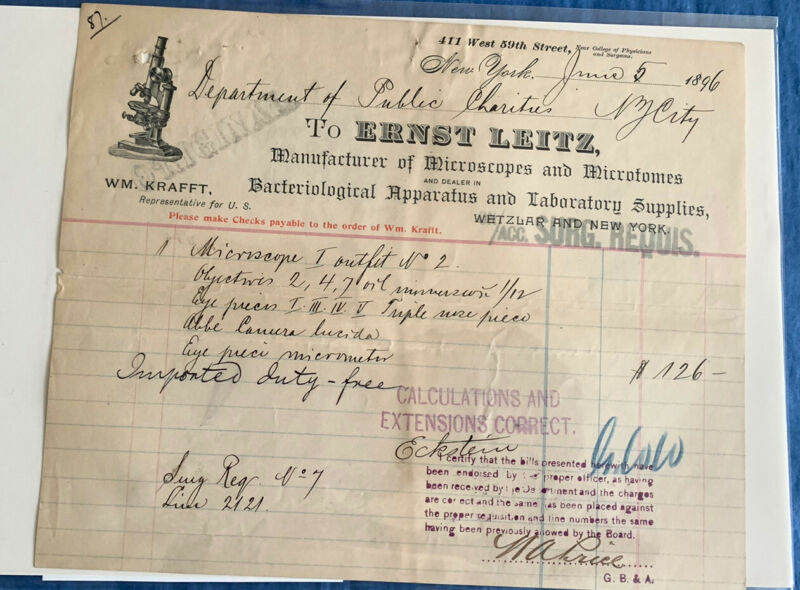 87.
411 West 59th Street, Near College of Physicians and Surgeons.
New York. June 5 1896
Department of Public Charities NY City
ORIGINAL
To ERNST LEITZ,
Manufacturer of Microscopes and Microtomes
AND DEALER IN
WM. KRAFFT, Bacteriological Apparatus and Laboratory Supplies,
Representative for U. S. WETZLAR AND NEW YORK.
Please make Checks payable to the order of Wm. Krafft.
/ACC. SURG. REQUIS.
1 Microscope I outfit No 2.
Objectives 2, 4, 7 oil immersion 1/12
Eye pieces I. III. IV. V Triple nose piece
Abbe Camera lucida
Eye piece micrometer $126-
Imported duty-free
CALCULATIONS AND
EXTENSIONS CORRECT.
Eckstein
certify that the bills presented herewith have
been endorsed by the proper officer, as having
been received by the Department and the charges
are correct and the same has been placed against
the proper requisition and line numbers the same
having been previously allowed by the Board.
Surg Req No 7
Line 2121.
G. B. & A.